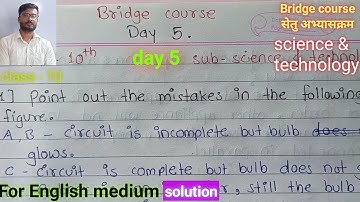 Bridge course
Day 5.
Bridge course
सेतु अभ्यासक्रम
science &
technology
10th
day 5
sub-science
class : 10
1] Point out the mistakes in the following
figure.
A, B - circuit is incomplete but bulb does
glows.
C - circuit is complete but bulb does not
For English medium solution
still the bulb